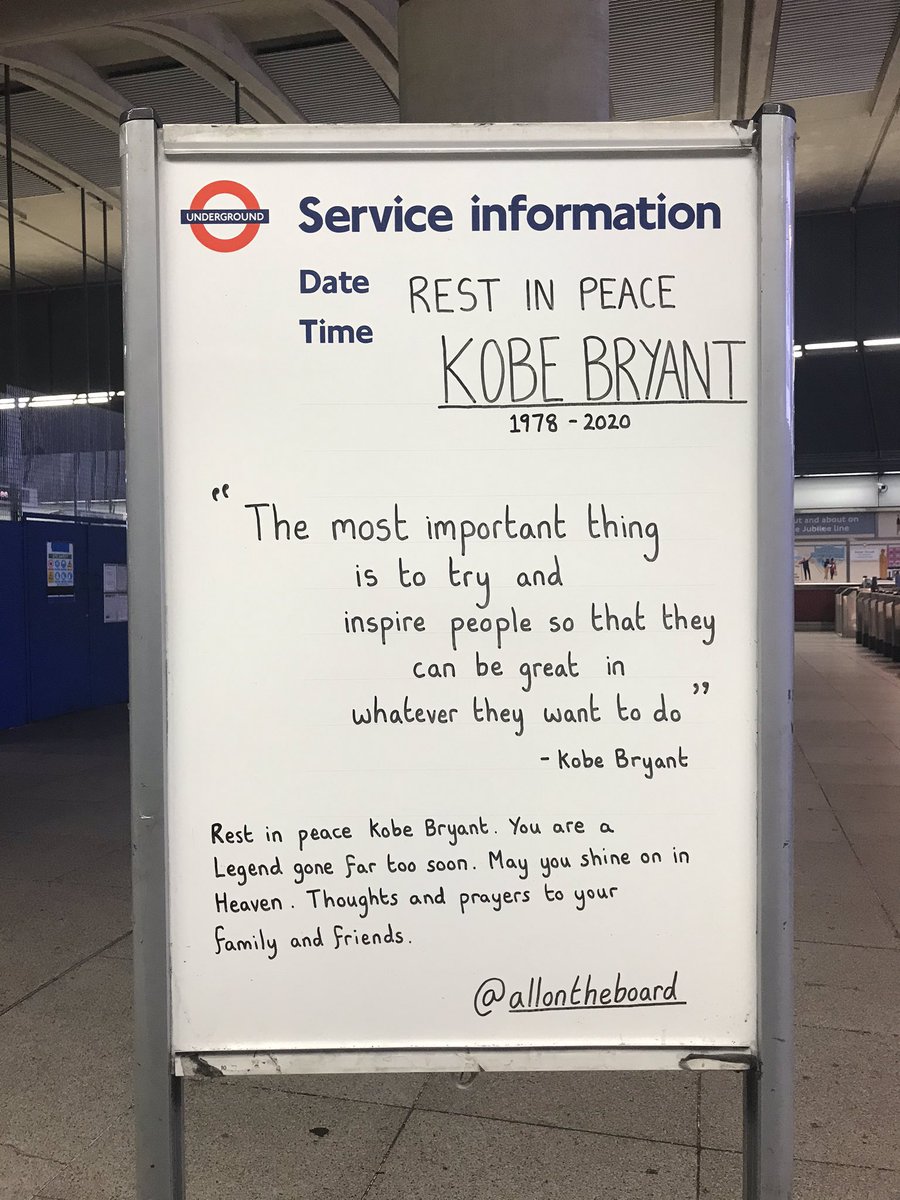 UNDERGROUND
Service information
Date
REST IN PEACE
Time
KOBE BRYANT
1978 - 2020
"The most important thing
is to try and
inspire people so that they
can be great in
whatever they want to do"
- Kobe Bryant
Rest in peace Kobe Bryant. You are a
Legend gone far too soon. May you shine on in
Heaven. Thoughts and prayers to your
family and friends.
@allontheboard
ut and about on
e Jubilee line